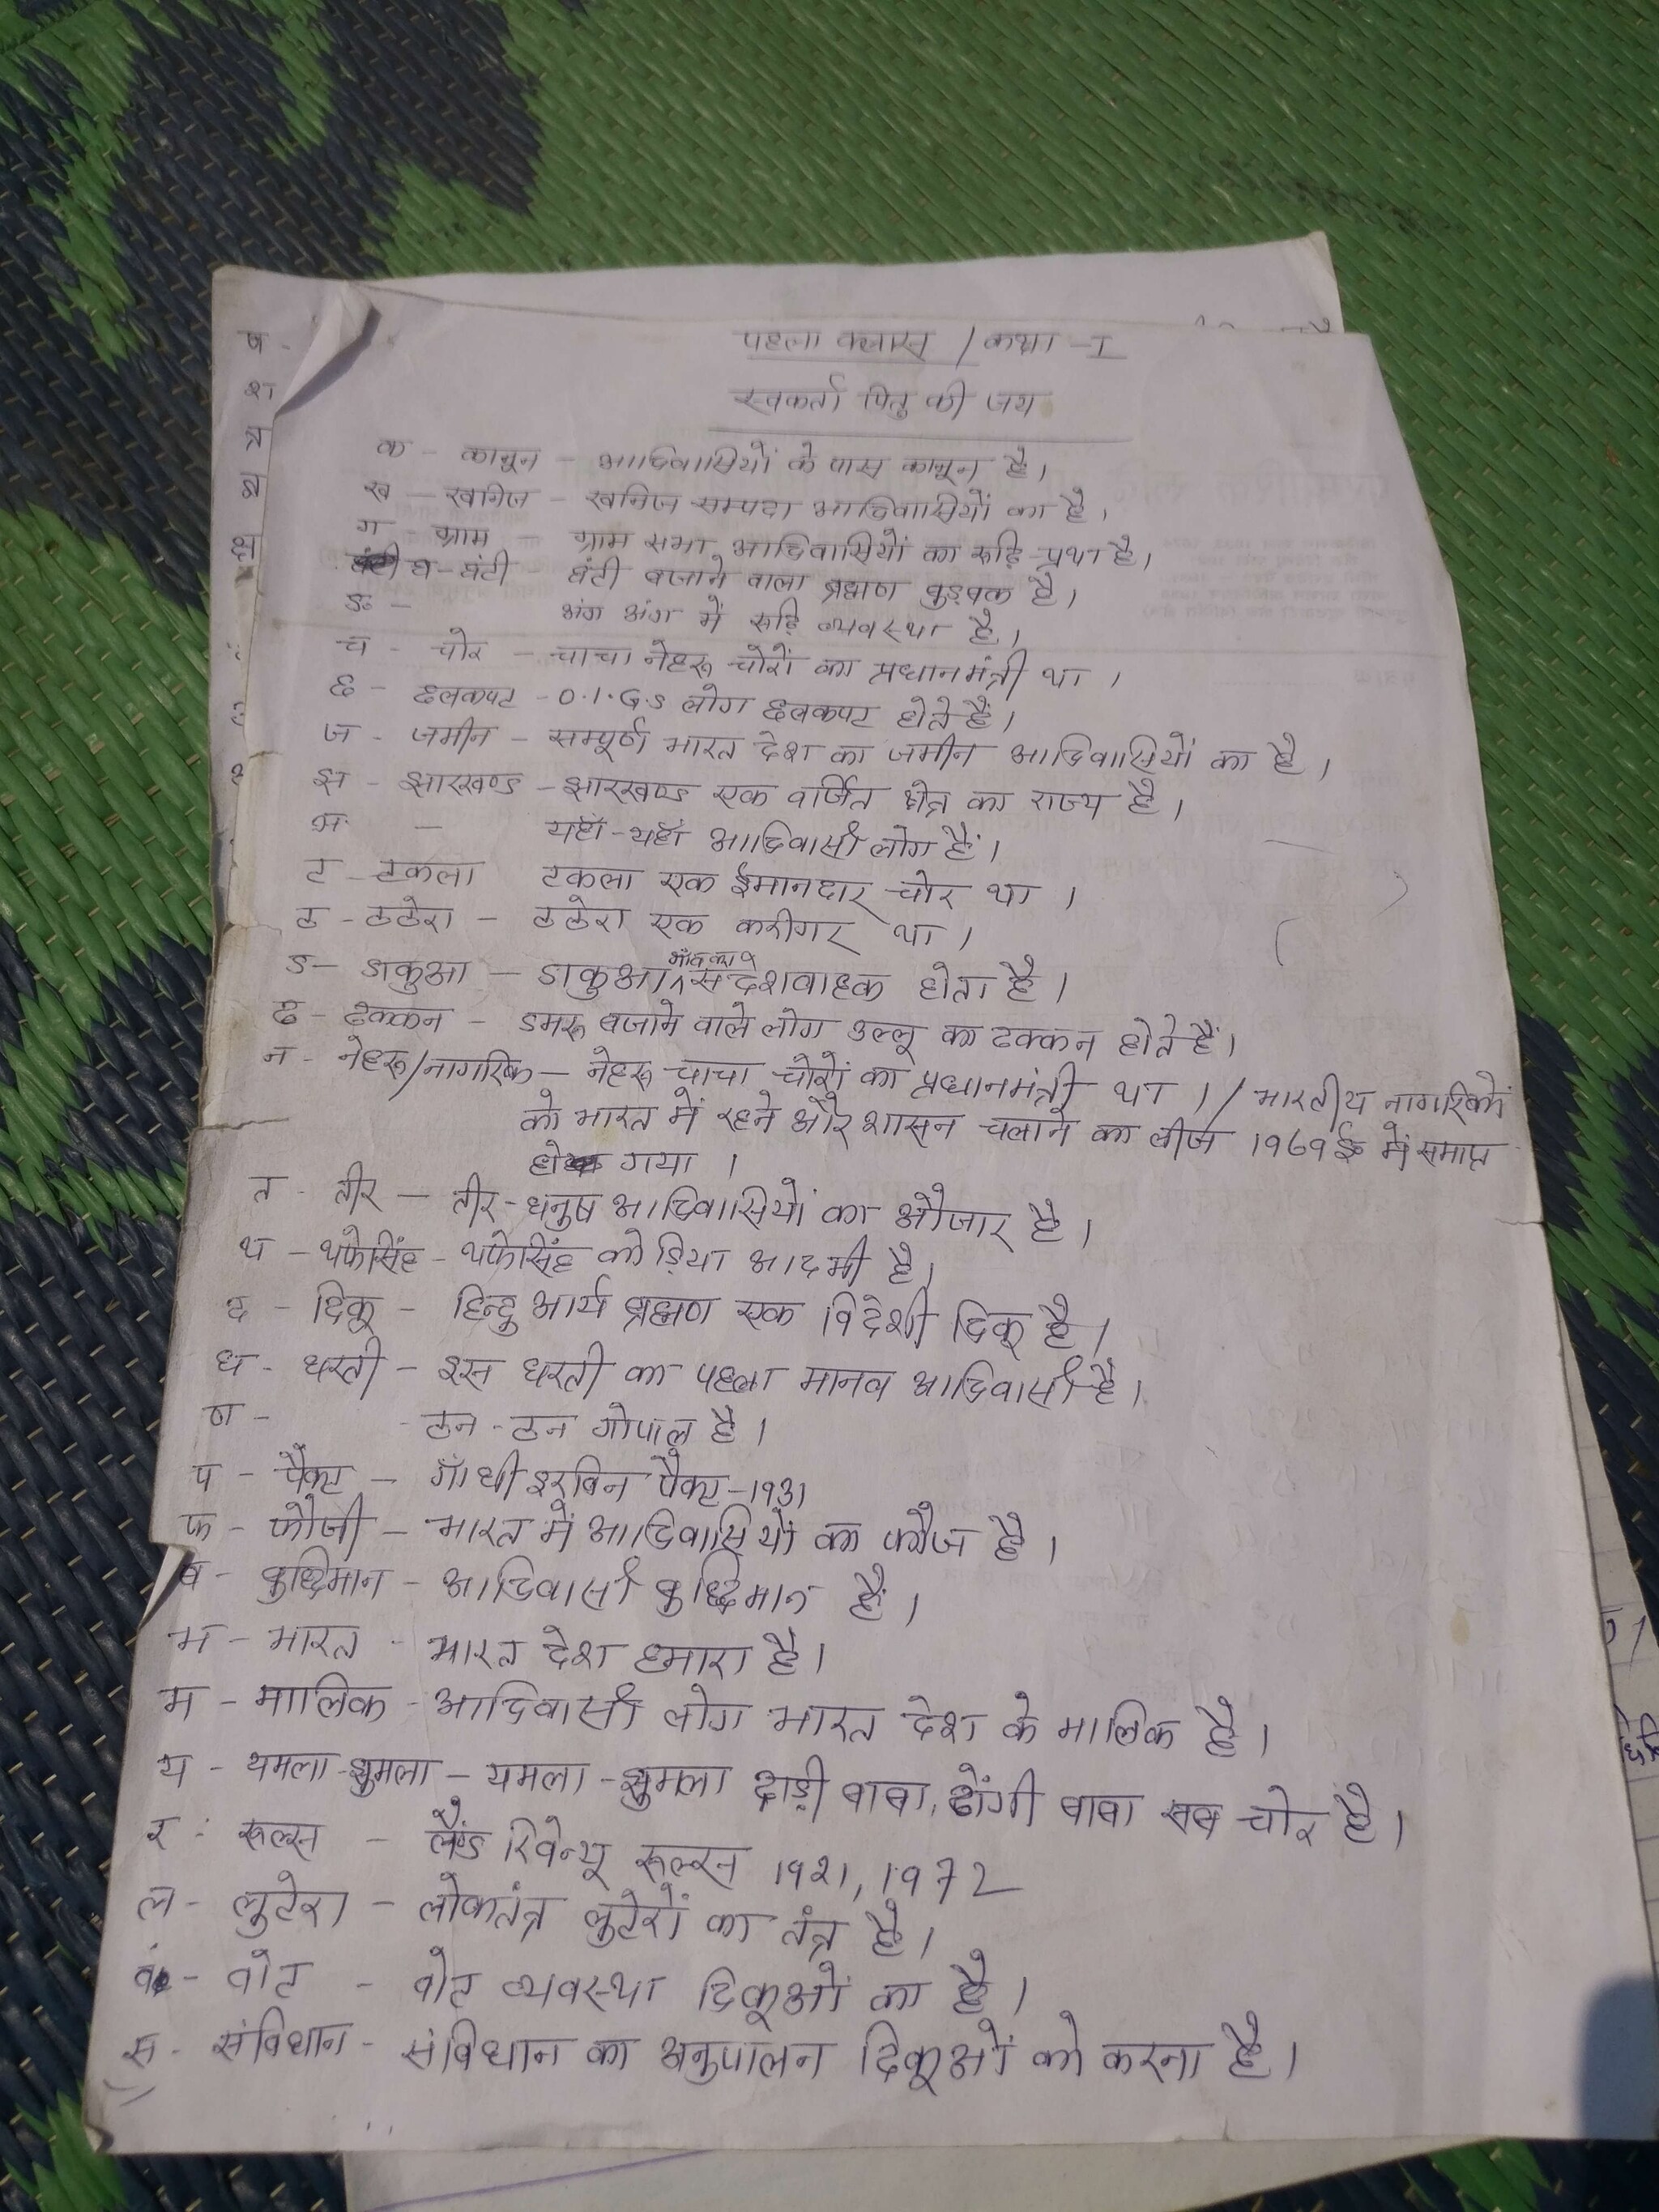 पहला क्लास / कक्षा - I
स्वकर्ता पितु की जय
क - कानून - आदिवासियों के पास कानून है।
ख - खनिज - खनिज सम्पदा आदिवासियों का है।
ग - ग्राम - ग्राम सभा आदिवासियों का रूढ़ि प्रथा है।
घ - घंटी घंटी बजाने वाला ब्रह्मण बुड़बक है।
ङ - अंग अंग में रूढ़ि व्यवस्था है।
च - चोर - चाचा नेहरू चोरों का प्रधानमंत्री था।
छ - छलकपट - O.I.G.S लोग छलकपट होते हैं।
ज - जमीन - सम्पूर्ण भारत देश का जमीन आदिवासियों का है।
झ - झारखण्ड - झारखण्ड एक वर्जित क्षेत्र का राज्य है।
ञ - यहाँ-यहाँ आदिवासी लोग हैं।
ट - टकला टकला एक ईमानदार चोर था।
ठ - ठठेरा - ठठेरा एक करीगर था।
ड - डाकुआ - डाकुआ संदेशवाहक होता है।
ढ - ढक्कन - डमरू बजाने वाले लोग उल्लू का ढक्कन होते हैं।
न - नेहरू/नागरिक - नेहरू चाचा चोरों का प्रधानमंत्री था। / भारतीय नागरिकों
को भारत में रहने और शासन चलाने का लीज 1969 ई० में समाप्त
हो गया।
त - तीर - तीर-धनुष आदिवासियों का औजार है।
थ - थफेसिंह - थफेसिंह कोड़िया आदमी है।
द - दिकू - हिन्दु आर्य ब्रह्मण एक विदेशी दिकू है।
ध - धरती - इस धरती का पहला मानव आदिवासी है।
ण - - ठन-ठन गोपाल है।
प - पैक्ट - गाँधी इरविन पैक्ट-1931
फ - फौजी - भारत में आदिवासियों का फौज है।
ब - बुद्धिमान - आदिवासी बुद्धिमान हैं।
भ - भारत - भारत देश हमारा है।
म - मालिक - आदिवासी लोग भारत देश के मालिक है।
य - यमला-झुमला - यमला-झुमला दाढ़ी बाबा, ढोंगी बाबा सब चोर है।
र - रूल्स - लैण्ड रिवेन्यू रूल्स 1921, 1972
ल - लुटेरा - लोकतंत्र लुटेरों का तंत्र है।
व - वोट - वोट व्यवस्था दिकूओं का है।
स - संविधान - संविधान का अनुपालन दिकूओं को करना है।
ष -
श
त्र
ज्ञ
क्ष